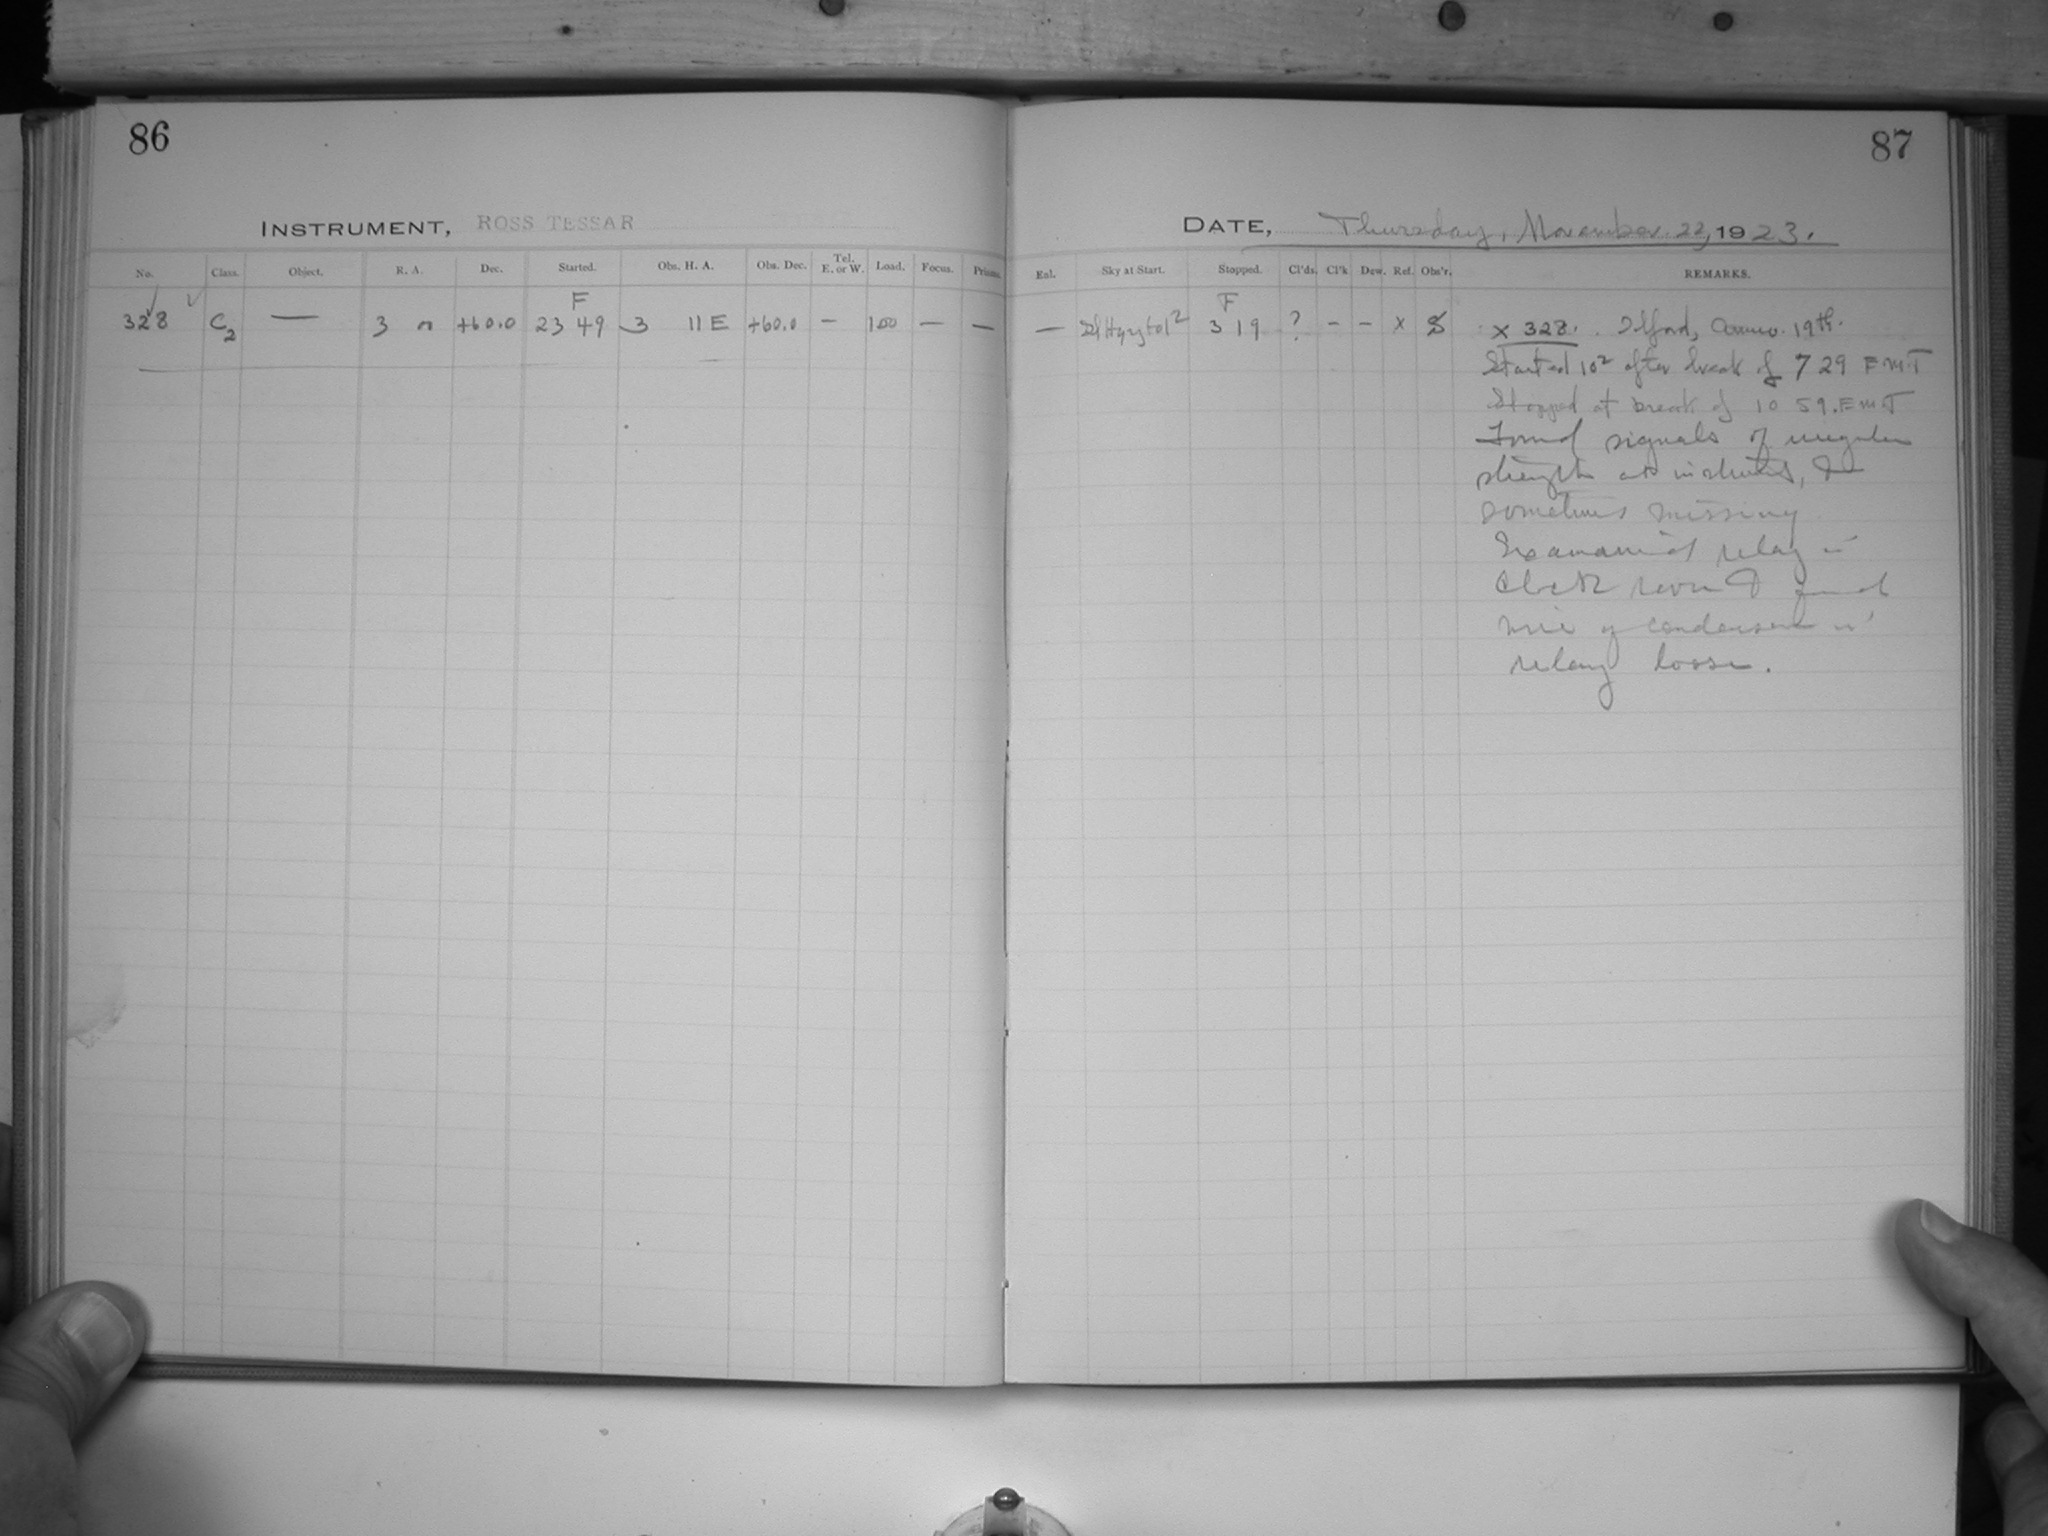 86
INSTRUMENT, ROSS TESSAR
No. Class. Object. R. A. Dec. Started. Obs. H. A. Obs. Dec. Tel. E. or W. Load. Focus. Prisms.
F
328 C2 — 3 n +60.0 23 49 3 11 E +60.0 – 100 — —
87
DATE, Thursday, November 22, 1923.
Eal. Sky at Start. Stopped. Cl'ds. Cl'k Dew. Ref. Obs'r. REMARKS.
F
— 3 19 ? – – x S x 328. Ilford, 19th.
Started 10² after break of 7 29 E M T
Stopped at break of 10 59. E M T
Found signals of irregular
strength at &
sometimes missing
Examined relay in
clock room & found
wire of condenser in
relay loose.